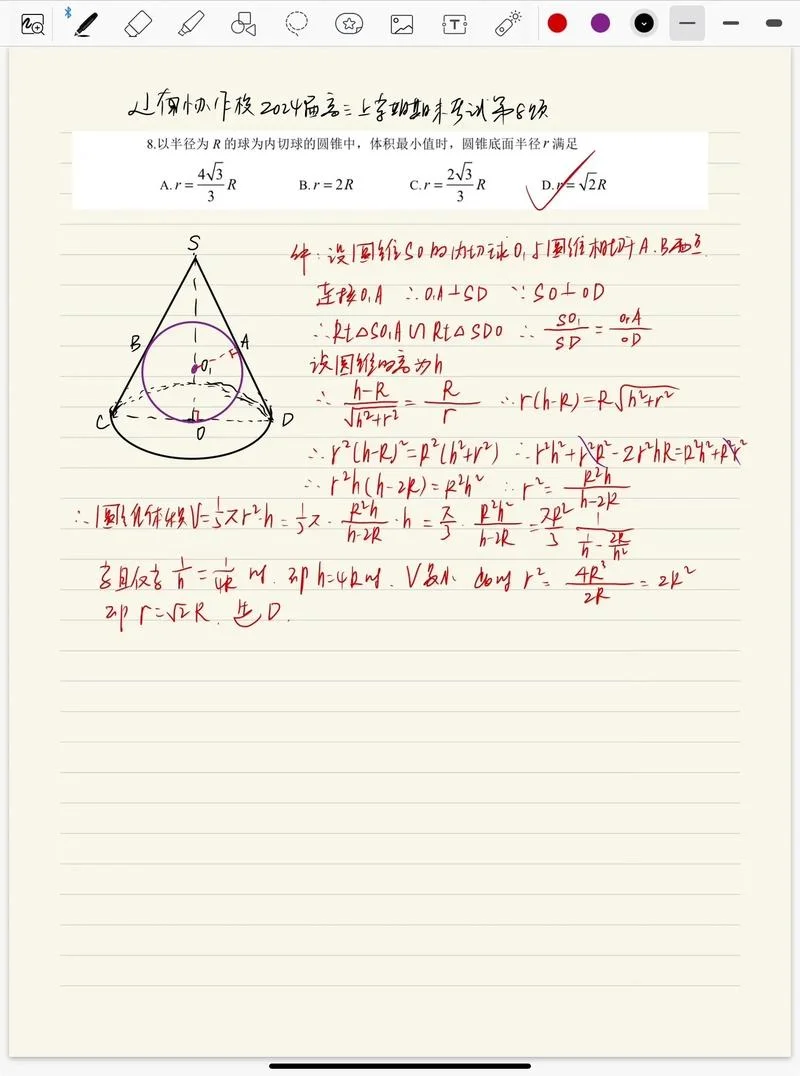 辽宁协作校2024届高三上学期期末考试第8题
8.以半径为 R 的球为内切球的圆锥中，体积最小值时，圆锥底面半径 r 满足
A. r = 4√3/3 R B. r = 2R C. r = 2√3/3 R D. r = √2R
S
B
A
O₁
C
D
O
解：设圆锥SO的内切球O₁与圆锥相切于A.B两点.
连接O₁A ∴O₁A⊥SD ∵SO⊥OD
∴Rt△SO₁A∽Rt△SDO ∴ SO₁/SD = O₁A/OD
设圆锥的高为h
∴ (h-R)/√(h²+r²) = R/r ∴r(h-R)=R√(h²+r²)
∴r²(h-R)²=R²(h²+r²) ∴r²h²+r²R²-2r²hR=R²h²+R²r²
∴r²h(h-2R)=R²h² ∴r²= R²h/(h-2R)
∴圆锥体积V=1/3πr²·h=1/3π·R²h/(h-2R)·h=π/3·R²h²/(h-2R)=πR²/3 1/(1/h-2R/h²)
当且仅当 1/h=1/4R 时.即h=4R时.V最小 r²=4R³/2R=2R²
即r=√2R.选D.